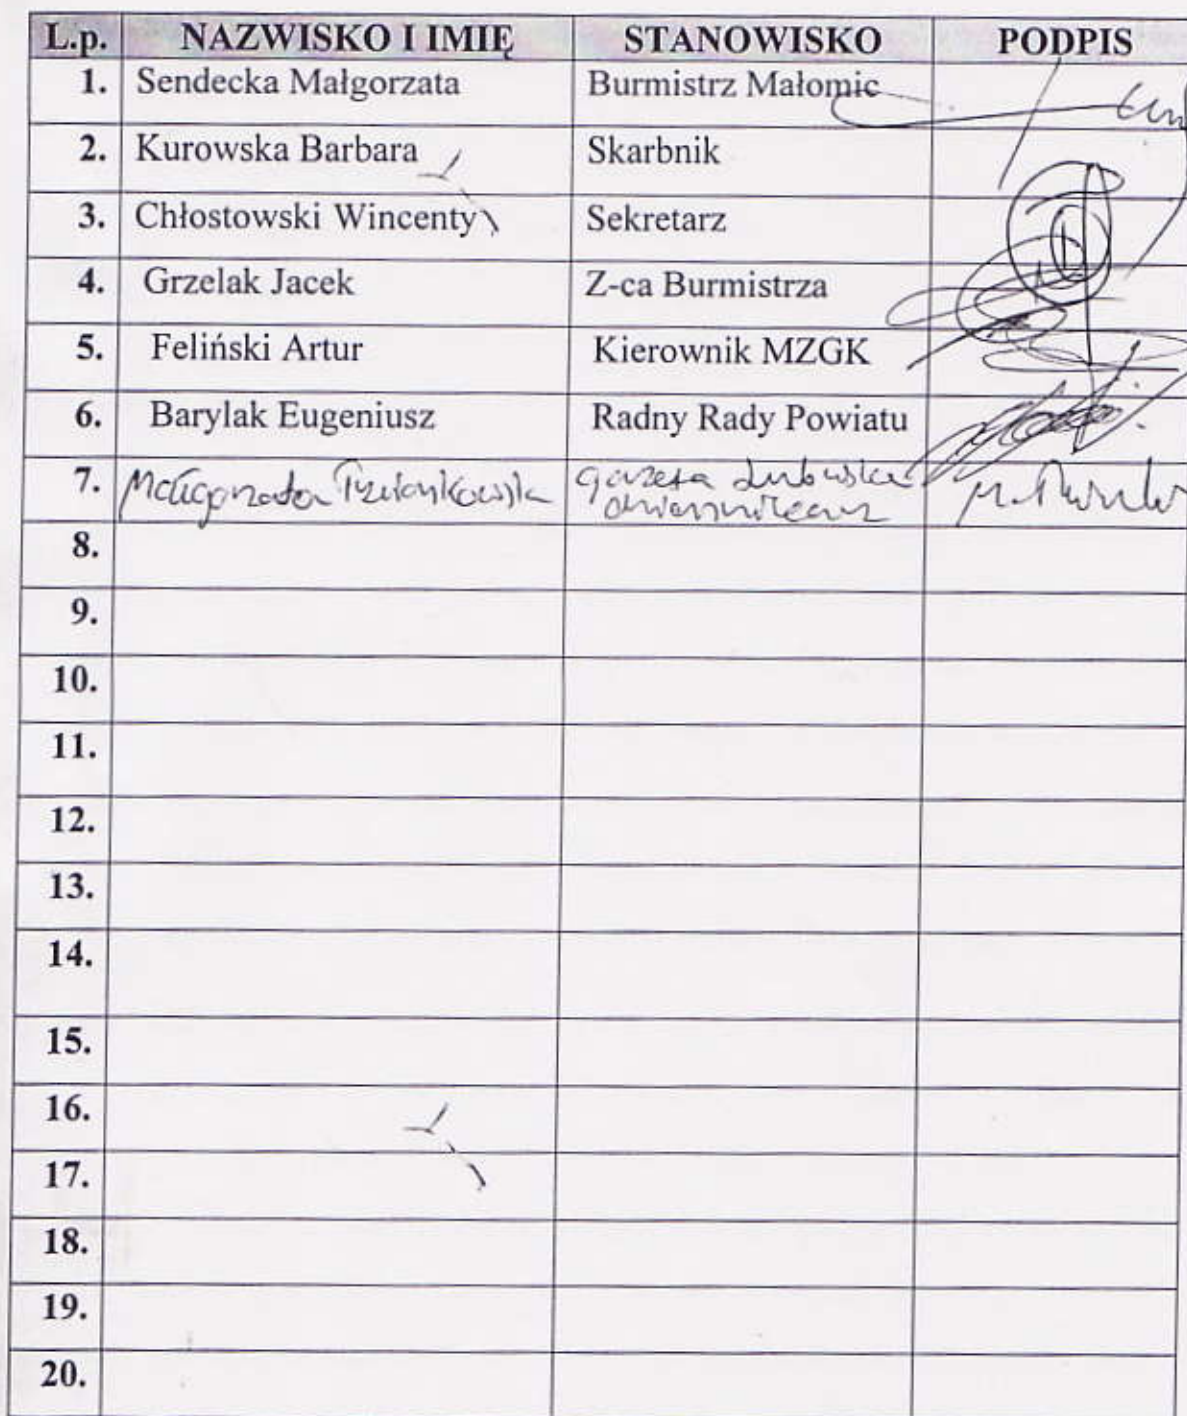 L.p. NAZWISKO I IMIĘ STANOWISKO PODPIS
1. Sendecka Małgorzata Burmistrz Małomic
2. Kurowska Barbara Skarbnik
3. Chłostowski Wincenty Sekretarz
4. Grzelak Jacek Z-ca Burmistrza
5. Feliński Artur Kierownik MZGK
6. Barylak Eugeniusz Radny Rady Powiatu
7. Małgorzata gazeta Lubuska
dziennikarz
8.
9.
10.
11.
12.
13.
14.
15.
16.
17.
18.
19.
20.